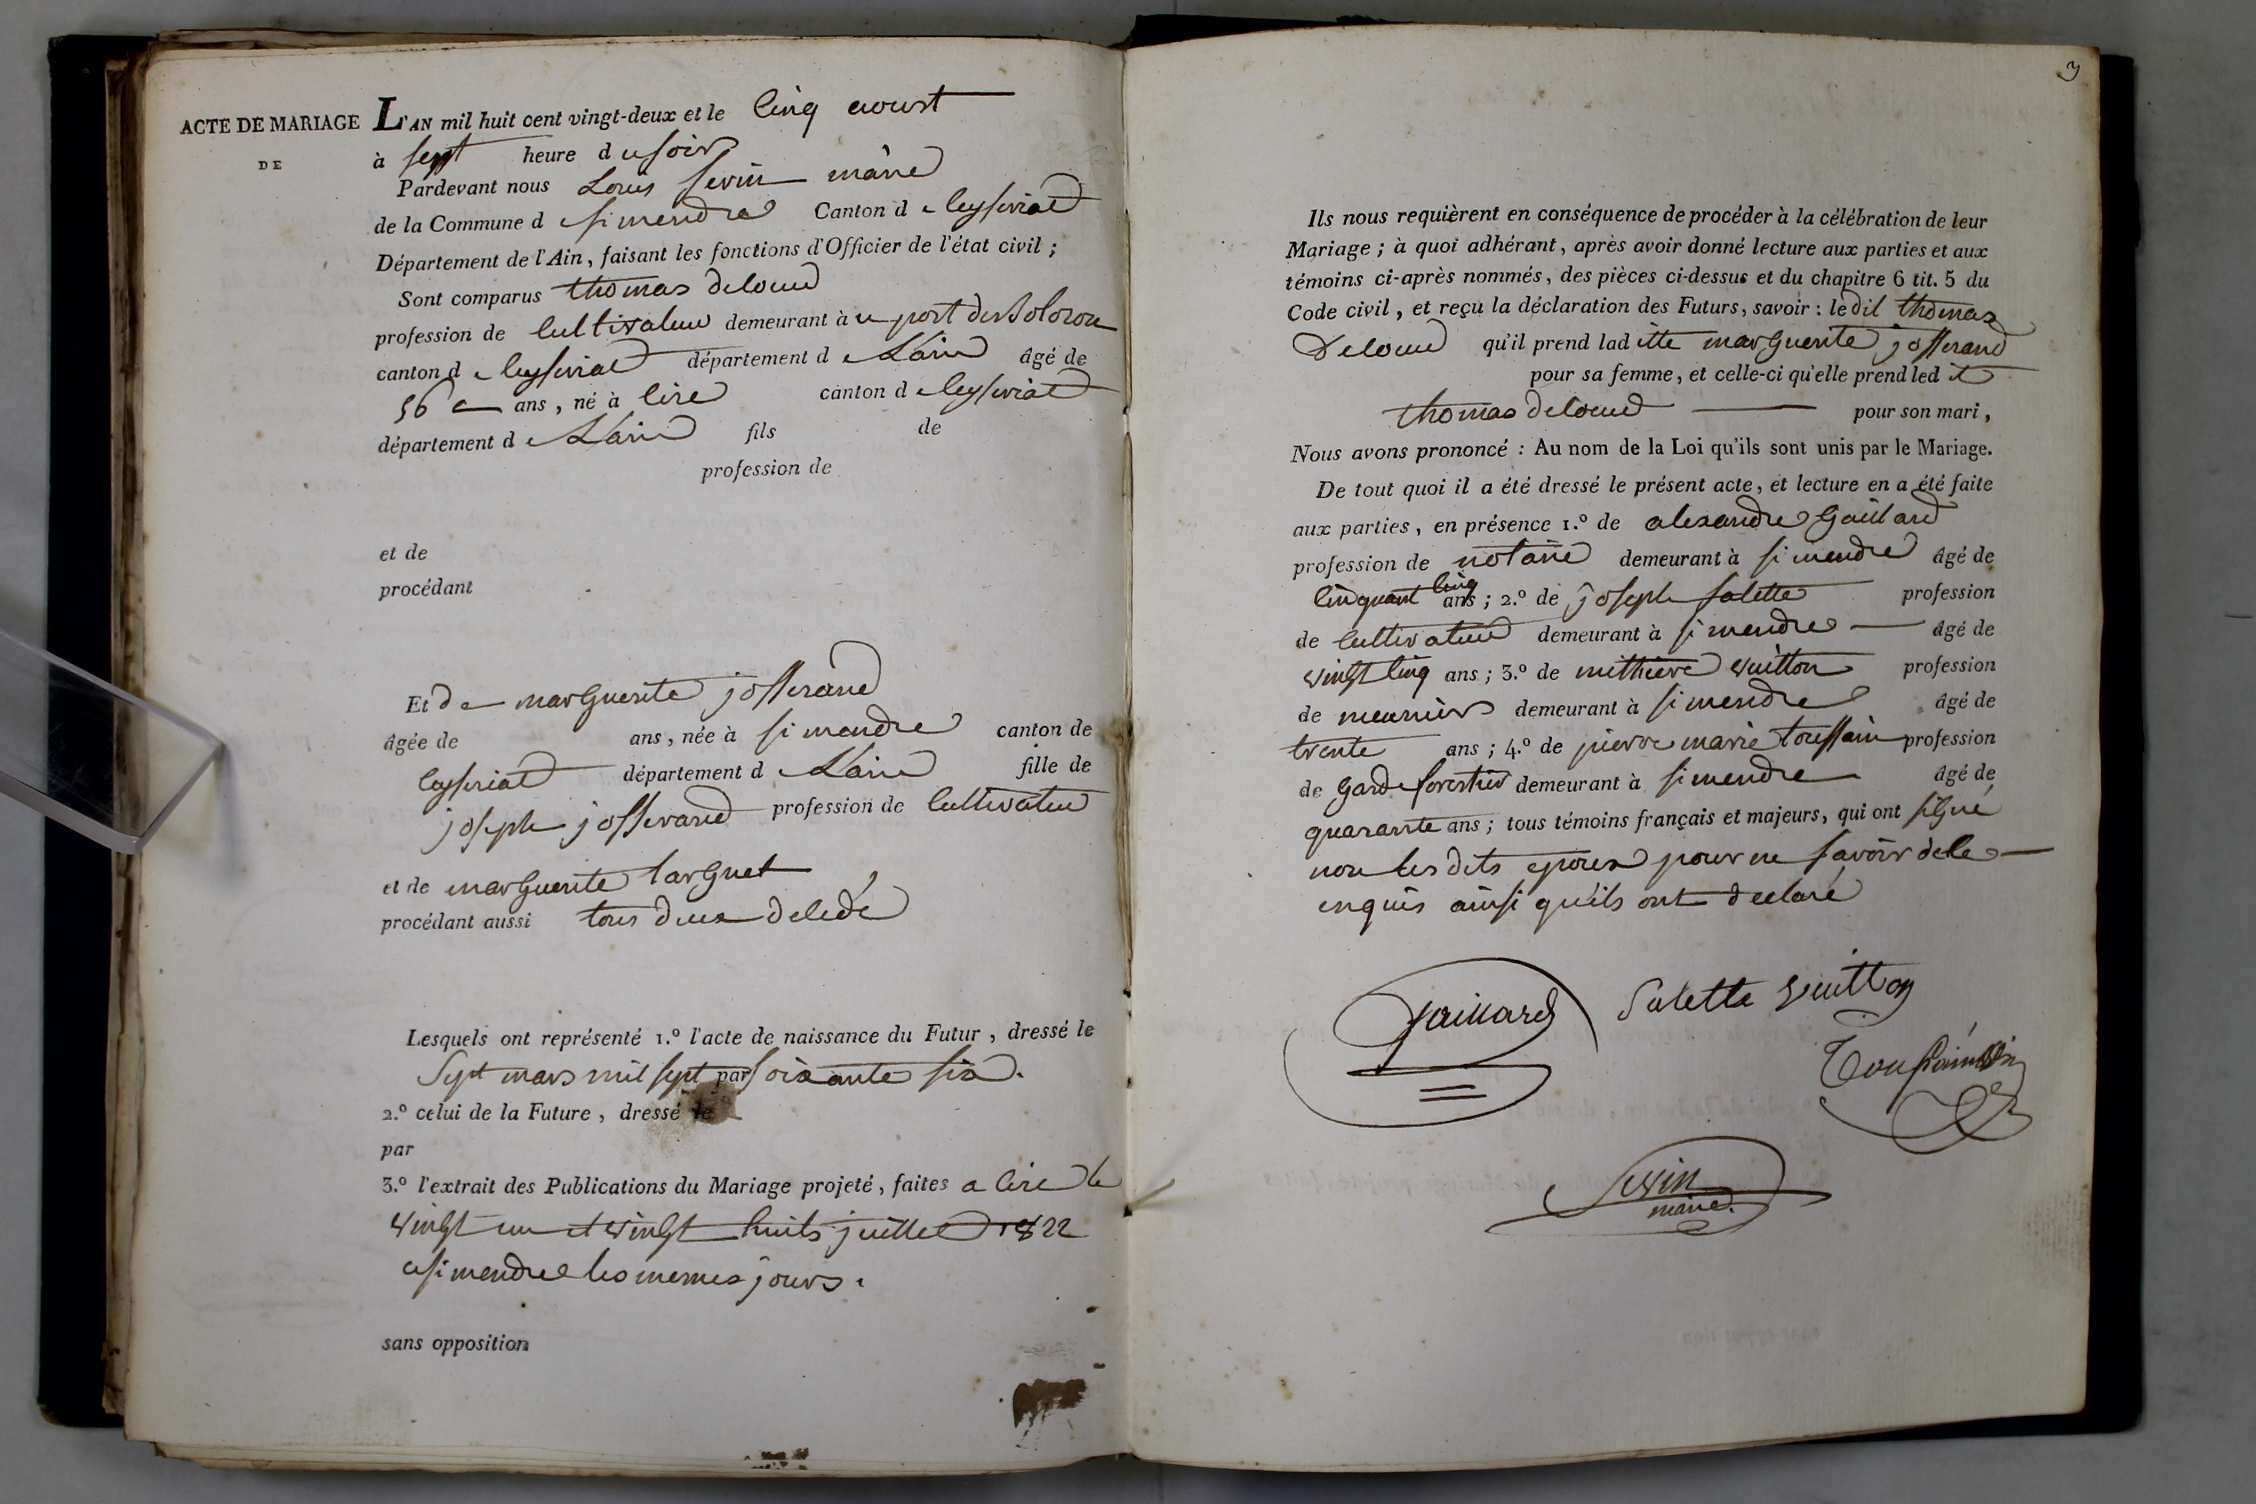 ACTE DE MARIAGE
DE
L'AN mil huit cent vingt-deux et le cinq aoust
à sept heure du soir
Pardevant nous Louis Sevin maire
de la Commune d e simendre Canton d e ceyseriat
Département de l'Ain, faisant les fonctions d'Officier de l'état civil ;
Sont comparus thomas deloeud
profession de cultivateur demeurant à u port des
canton d e ceyseriat département d e Lain âgé de
56 ans, né à cire canton d e ceyseriat
département d e Lain fils de
profession de
et de
procédant
Et de marguerite josserand
âgée de ans, née à simendre canton de
ceyseriat département d e Lain fille de
joseph josserand profession de cultivateur
et de marguerite
procédant aussi tous deux dcédé
Lesquels ont représenté 1.º l'acte de naissance du Futur, dressé le
Sept mars mil sept par soixante six.
2.º celui de la Future, dressé le
par
3.º l'extrait des Publications du Mariage projeté, faites a cire le
vingt un et vingt huits juillet 1822
a simendre les memes jours.
sans opposition
3
Ils nous requièrent en conséquence de procéder à la célébration de leur
Mariage ; à quoi adhérant, après avoir donné lecture aux parties et aux
témoins ci-après nommés, des pièces ci-dessus et du chapitre 6 tit. 5 du
Code civil, et reçu la déclaration des Futurs, savoir : le dit thomas
Deloeud qu'il prend lad itte marguerite josserand
pour sa femme, et celle-ci qu'elle prend led it
thomas deloeud pour son mari,
Nous avons prononcé : Au nom de la Loi qu'ils sont unis par le Mariage.
De tout quoi il a été dressé le présent acte, et lecture en a été faite
aux parties, en présence 1.º de alexandre Gaillard
profession de notaire demeurant à simendre âgé de
cinquant cinq ans ; 2.º de joseph salette profession
de cultivateur demeurant à simendre âgé de
vingt cinq ans ; 3.º de vuitton profession
de meunier demeurant à simendre âgé de
trente ans ; 4.º de pierre marie toussain profession
de Garde forestier demeurant à simendre âgé de
quarante ans ; tous témoins français et majeurs, qui ont signé
non les dits epoux pour ne savoir de ce
enquis ainsi qu'ils ont declaré
Gaillard Salette Vuitton
Toussaint
Sevin
maire.